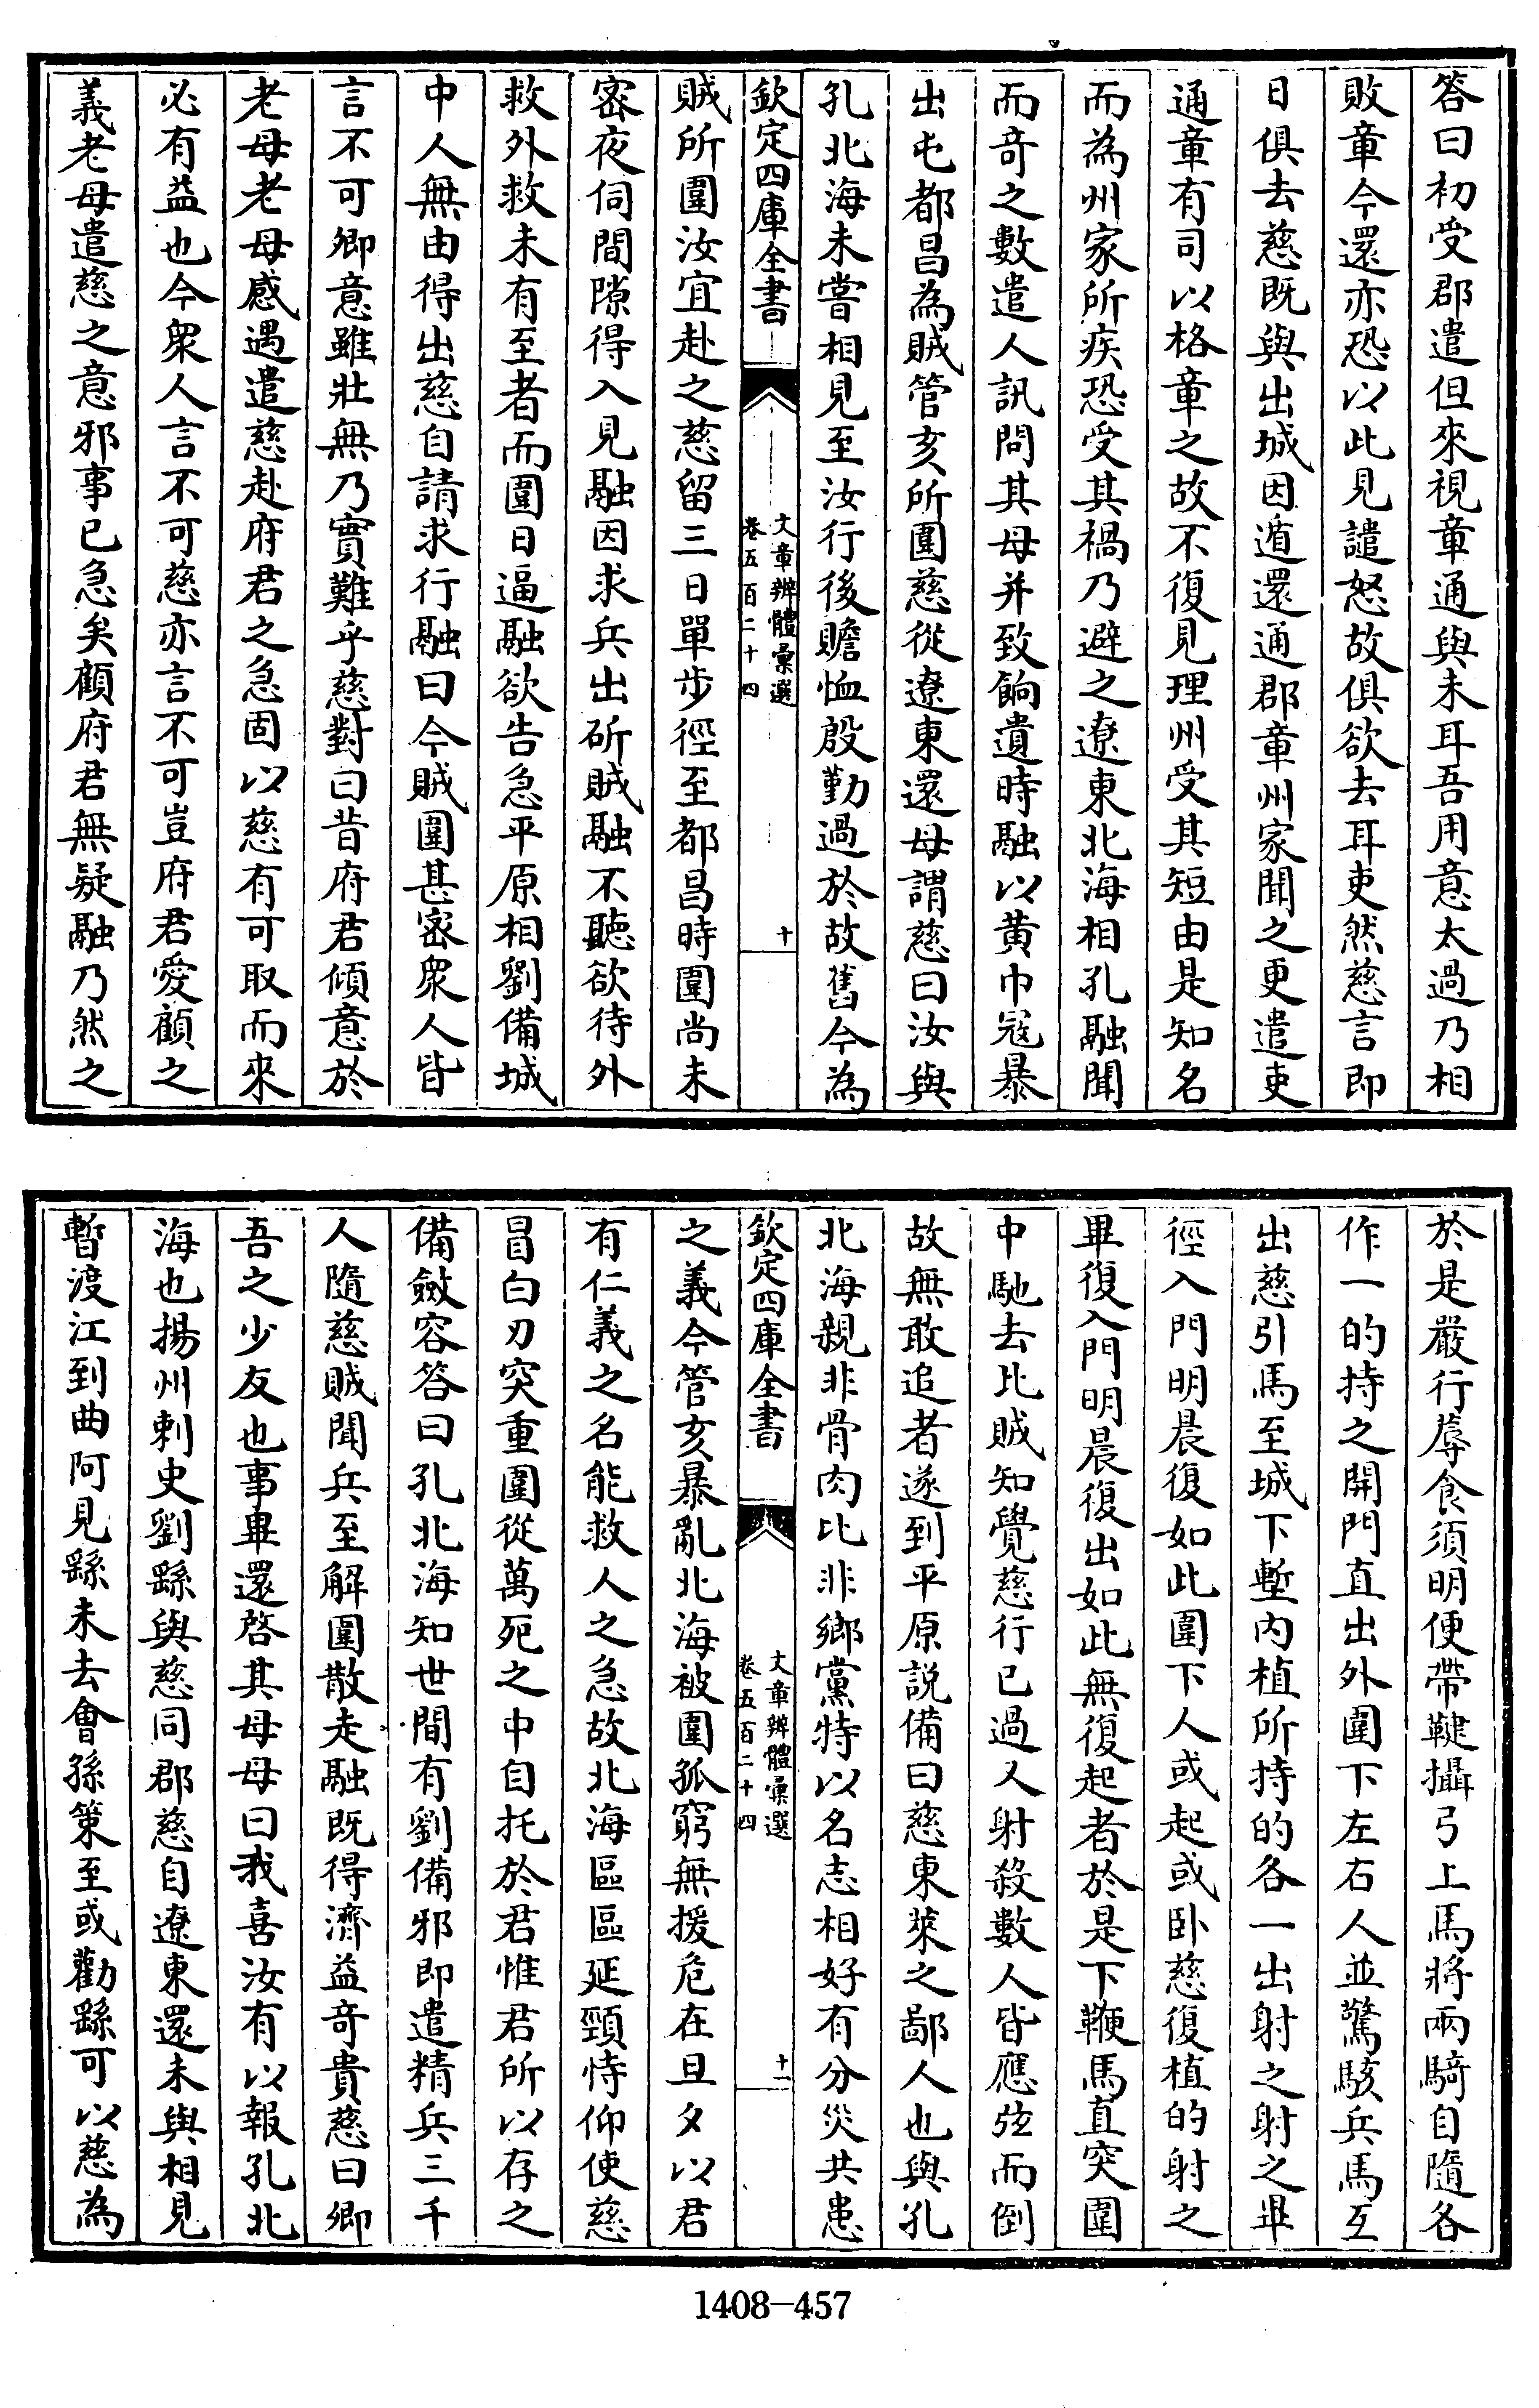 答曰初受郡遣但來視章通與未耳吾用意太過乃相
敗章今還亦恐以此見譴怒故俱欲去耳吏然慈言即
日俱去慈既與出城因遁還通郡章州家聞之更遣吏
通章有司以格章之故不復見理州受其短由是知名
而為州家所疾恐受其禍乃避之遼東北海相孔融聞
而奇之數遣人訊問其母并致餉遺時融以黄巾冦暴
出屯都昌為賊管亥所圍慈從遼東還母謂慈曰汝與
孔北海未嘗相見至汝行後贍恤殷勤過於故舊今為
欽定四庫全書
文章辨體彚選
卷五百二十四
十
賊所圍汝宜赴之慈留三日單步徑至都昌時圍尚未
密夜伺間隙得入見融因求兵出斫賊融不聽欲待外
救外救未有至者而圍日逼融欲告急平原相劉備城
中人無由得出慈自請求行融曰今賊圍甚密衆人皆
言不可卿意雖壯無乃實難乎慈對曰昔府君傾意於
老母老母感遇遣慈赴府君之急固以慈有可取而來
必有益也今衆人言不可慈亦言不可豈府君愛顧之
義老母遣慈之意邪事已急矣願府君無疑融乃然之
於是嚴行蓐食須明便帶鞬攝弓上馬將兩騎自隨各
作一的持之開門直出外圍下左右人並驚駭兵馬互
出慈引馬至城下塹内植所持的各一出射之射之畢
徑入門明晨復如此圍下人或起或卧慈復植的射之
畢復入門明晨復出如此無復起者於是下鞭馬直突圍
中馳去比賊知覺慈行已過又射殺數人皆應弦而倒
故無敢追者遂到平原説備曰慈東萊之鄙人也與孔
北海親非骨肉比非鄉黨特以名志相好有分災共患
欽定四庫全書
文章辨體彚選
卷五百二十四
十一
之義今管亥暴亂北海被圍孤窮無援危在旦夕以君
有仁義之名能救人之急故北海區區延頸恃仰使慈
冒白刃突重圍從萬死之中自托於君惟君所以存之
備斂容答曰孔北海知世間有劉備邪即遣精兵三千
人隨慈賊聞兵至解圍散走融既得濟益奇貴慈曰卿
吾之少友也事畢還啓其母母曰我喜汝有以報孔北
海也揚州刺史劉繇與慈同郡慈自遼東還未與相見
暫渡江到曲阿見繇未去會孫策至或勸繇可以慈為
1408-457